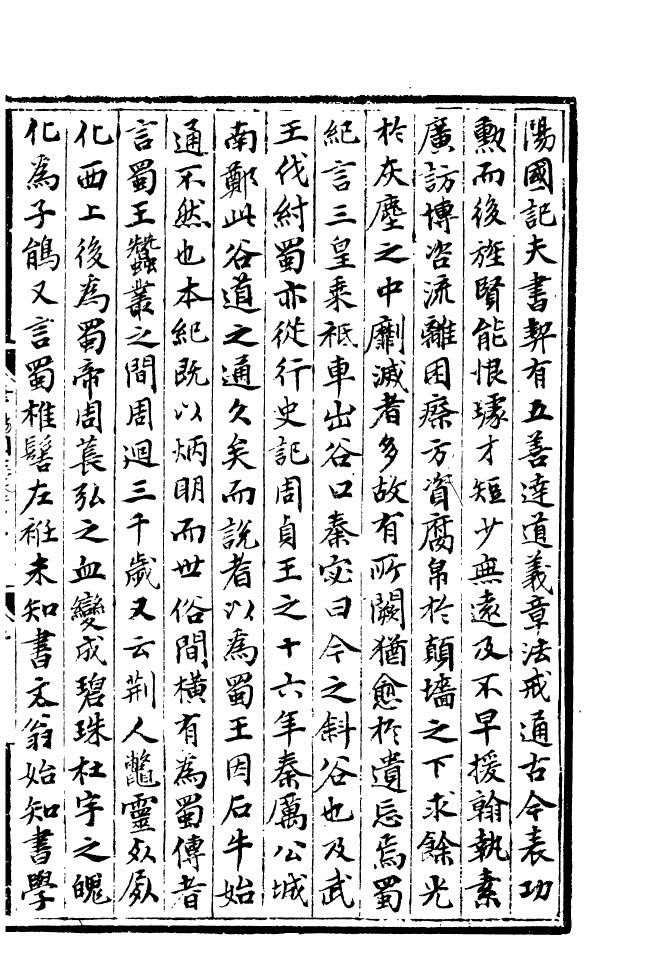 陽國記夫書契有五善達道義章法戒通古今表功
勲而後旌賢能恨璩才短少無遠及不早援翰執素
廣訪博咨流離困瘵方資腐帛於顛墻之下求餘光
於灰塵之中劘滅者多故有所闕猶愈於遺忘焉蜀
紀言三皇乗祇車出谷口秦宓曰今之斜谷也及武
王伐紂蜀亦從行史記周貞王之十六年秦厲公城
南鄭此谷道之通久矣而説者以爲蜀王因石牛始
通不然也本紀既以炳明而世俗間横有爲蜀傳者
言蜀王蠶叢之間周迴三千歲又云荆人鼈靈死屍
化西上後爲蜀帝周萇弘之血變成碧珠杜宇之魄
化爲子鵑又言蜀椎髻左衽未知書文翁始知書學